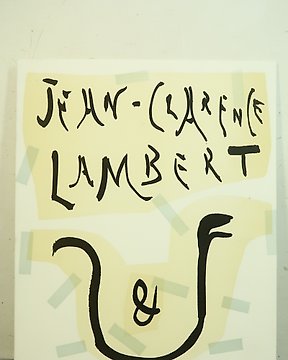 JEAN-CLARENCE
LAMBERT
&